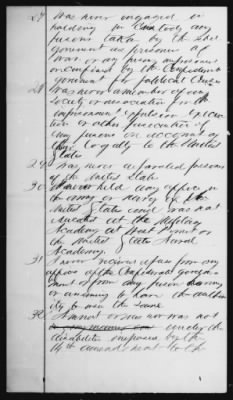 27 Was never engaged in
holding in Custody any
persons taken by the
government as prisoner of
war or any person imprisoned
or confined by the Confederate
government for political Cause
28 Was never a member of any
Society or association for the
imprisonment expulsion
or other persecution of
any person on account of
loyalty to the United
States
29 Was never a paroled prisoner
of the United States
30 Never held any office in
the army or Navy of the
United States and was not
Educated at the Military
Academy at West Point or
the United States Naval
Academy.
31 I never received a pass from any
officer of the Confederate govern-
ment or from any person having
or assuming to have the author-
ity to issue the same
32 Am not or ever was not
under the
disabilities imposed by the
14th amendment to the